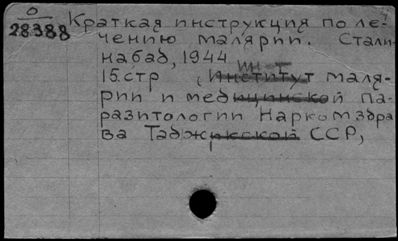 О
28388
Краткая инструкция по ле-
чению малярии. Стали-
набад, 1944
ин-т
15 стр (Институт маля-
рии и медицинской па-
разитологии Наркомздра
ва Таджикской ССР,